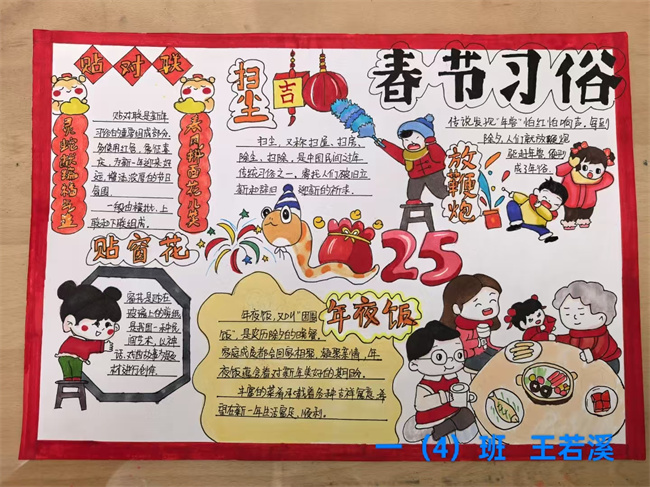 春节习俗
贴对联
灵蛇献瑞福气盈
春风拂面花儿笑
贴对联是新年
习俗的重要组成部分。
多使用红色，象征喜
庆，为新一年迎来好
运，增添浓厚的节日
氛围
一般由横批、上
联和下联组成。
扫尘
吉
扫尘，又称扫屋、扫房、
除尘、扫除，是中国民间过年
传统习俗之一，寄托人们破旧立
新和辞旧迎新的祈求。
传说发现"年兽"怕红怕响声，每到
除夕，人们就放鞭炮
驱赶年兽
成了年俗。
放鞭炮
贴窗花
窗花是贴在
玻璃上的剪纸
是我国一种民
间艺术，以神
话、戏曲故事为题
材进行创作
2025
年夜饭
年夜饭，又叫"团圆
饭"，是农历除夕的晚餐
家庭成员都会回家相聚，极重亲情，年
夜饭蕴含着对新年美好的期盼。
丰盛的菜肴承载着各种吉祥寓意，希
望在新一年生活富足、顺利。
一（4）班 王若溪